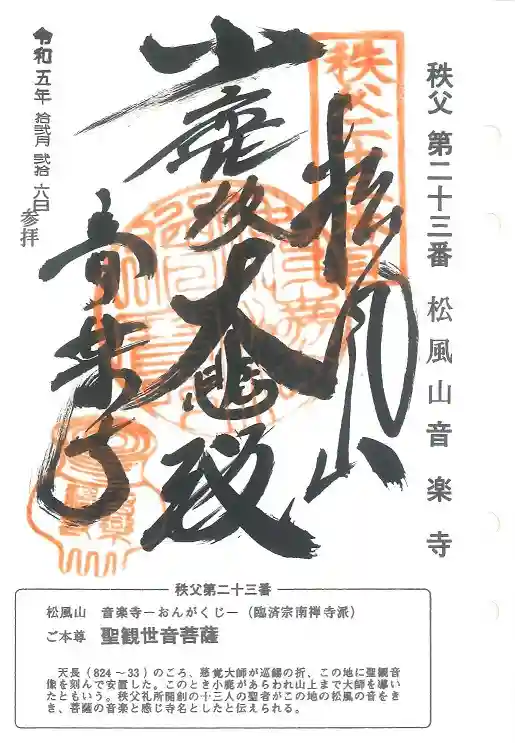 秩父 第二十三番 松風山 音楽寺
松風山
小鹿坂
大悲殿
音楽寺
令和五年 拾弐月 弐拾六日
参拝
秩父第二十三番
松風山 音楽寺－おんがくじ－（臨済宗南禅寺派）
ご本尊 聖観世音菩薩
天長（824～33）のころ、慈覚大師が巡錫の折、この地に聖観音
像を刻んで安置した。このとき小鹿があらわれ山上まで大師を導い
たともいう。秩父札所開創の十三人の聖者がこの地の松風の音をき
き、菩薩の音楽と感じ寺名としたと伝えられる。